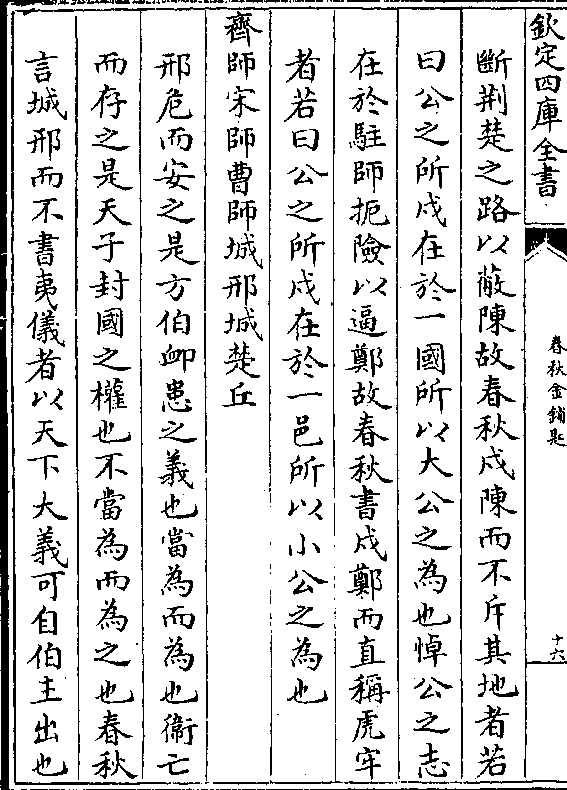 欽定四庫全書
春秋金鎖匙
十六
斷荆楚之路以蔽陳故春秋戍陳而不斥其地者若
曰公之所戍在於一國所以大公之為也悼公之志
在於駐師扼險以逼鄭故春秋書戍鄭而直稱虎牢
者若曰公之所戍在於一邑所以小公之為也
齊師宋師曹師城邢城楚丘
邢危而安之是方伯卹患之義也當為而為也衞亡
而存之是天子封國之權也不當為而為之也春秋
言城邢而不書夷儀者以天下大義可自伯主出也